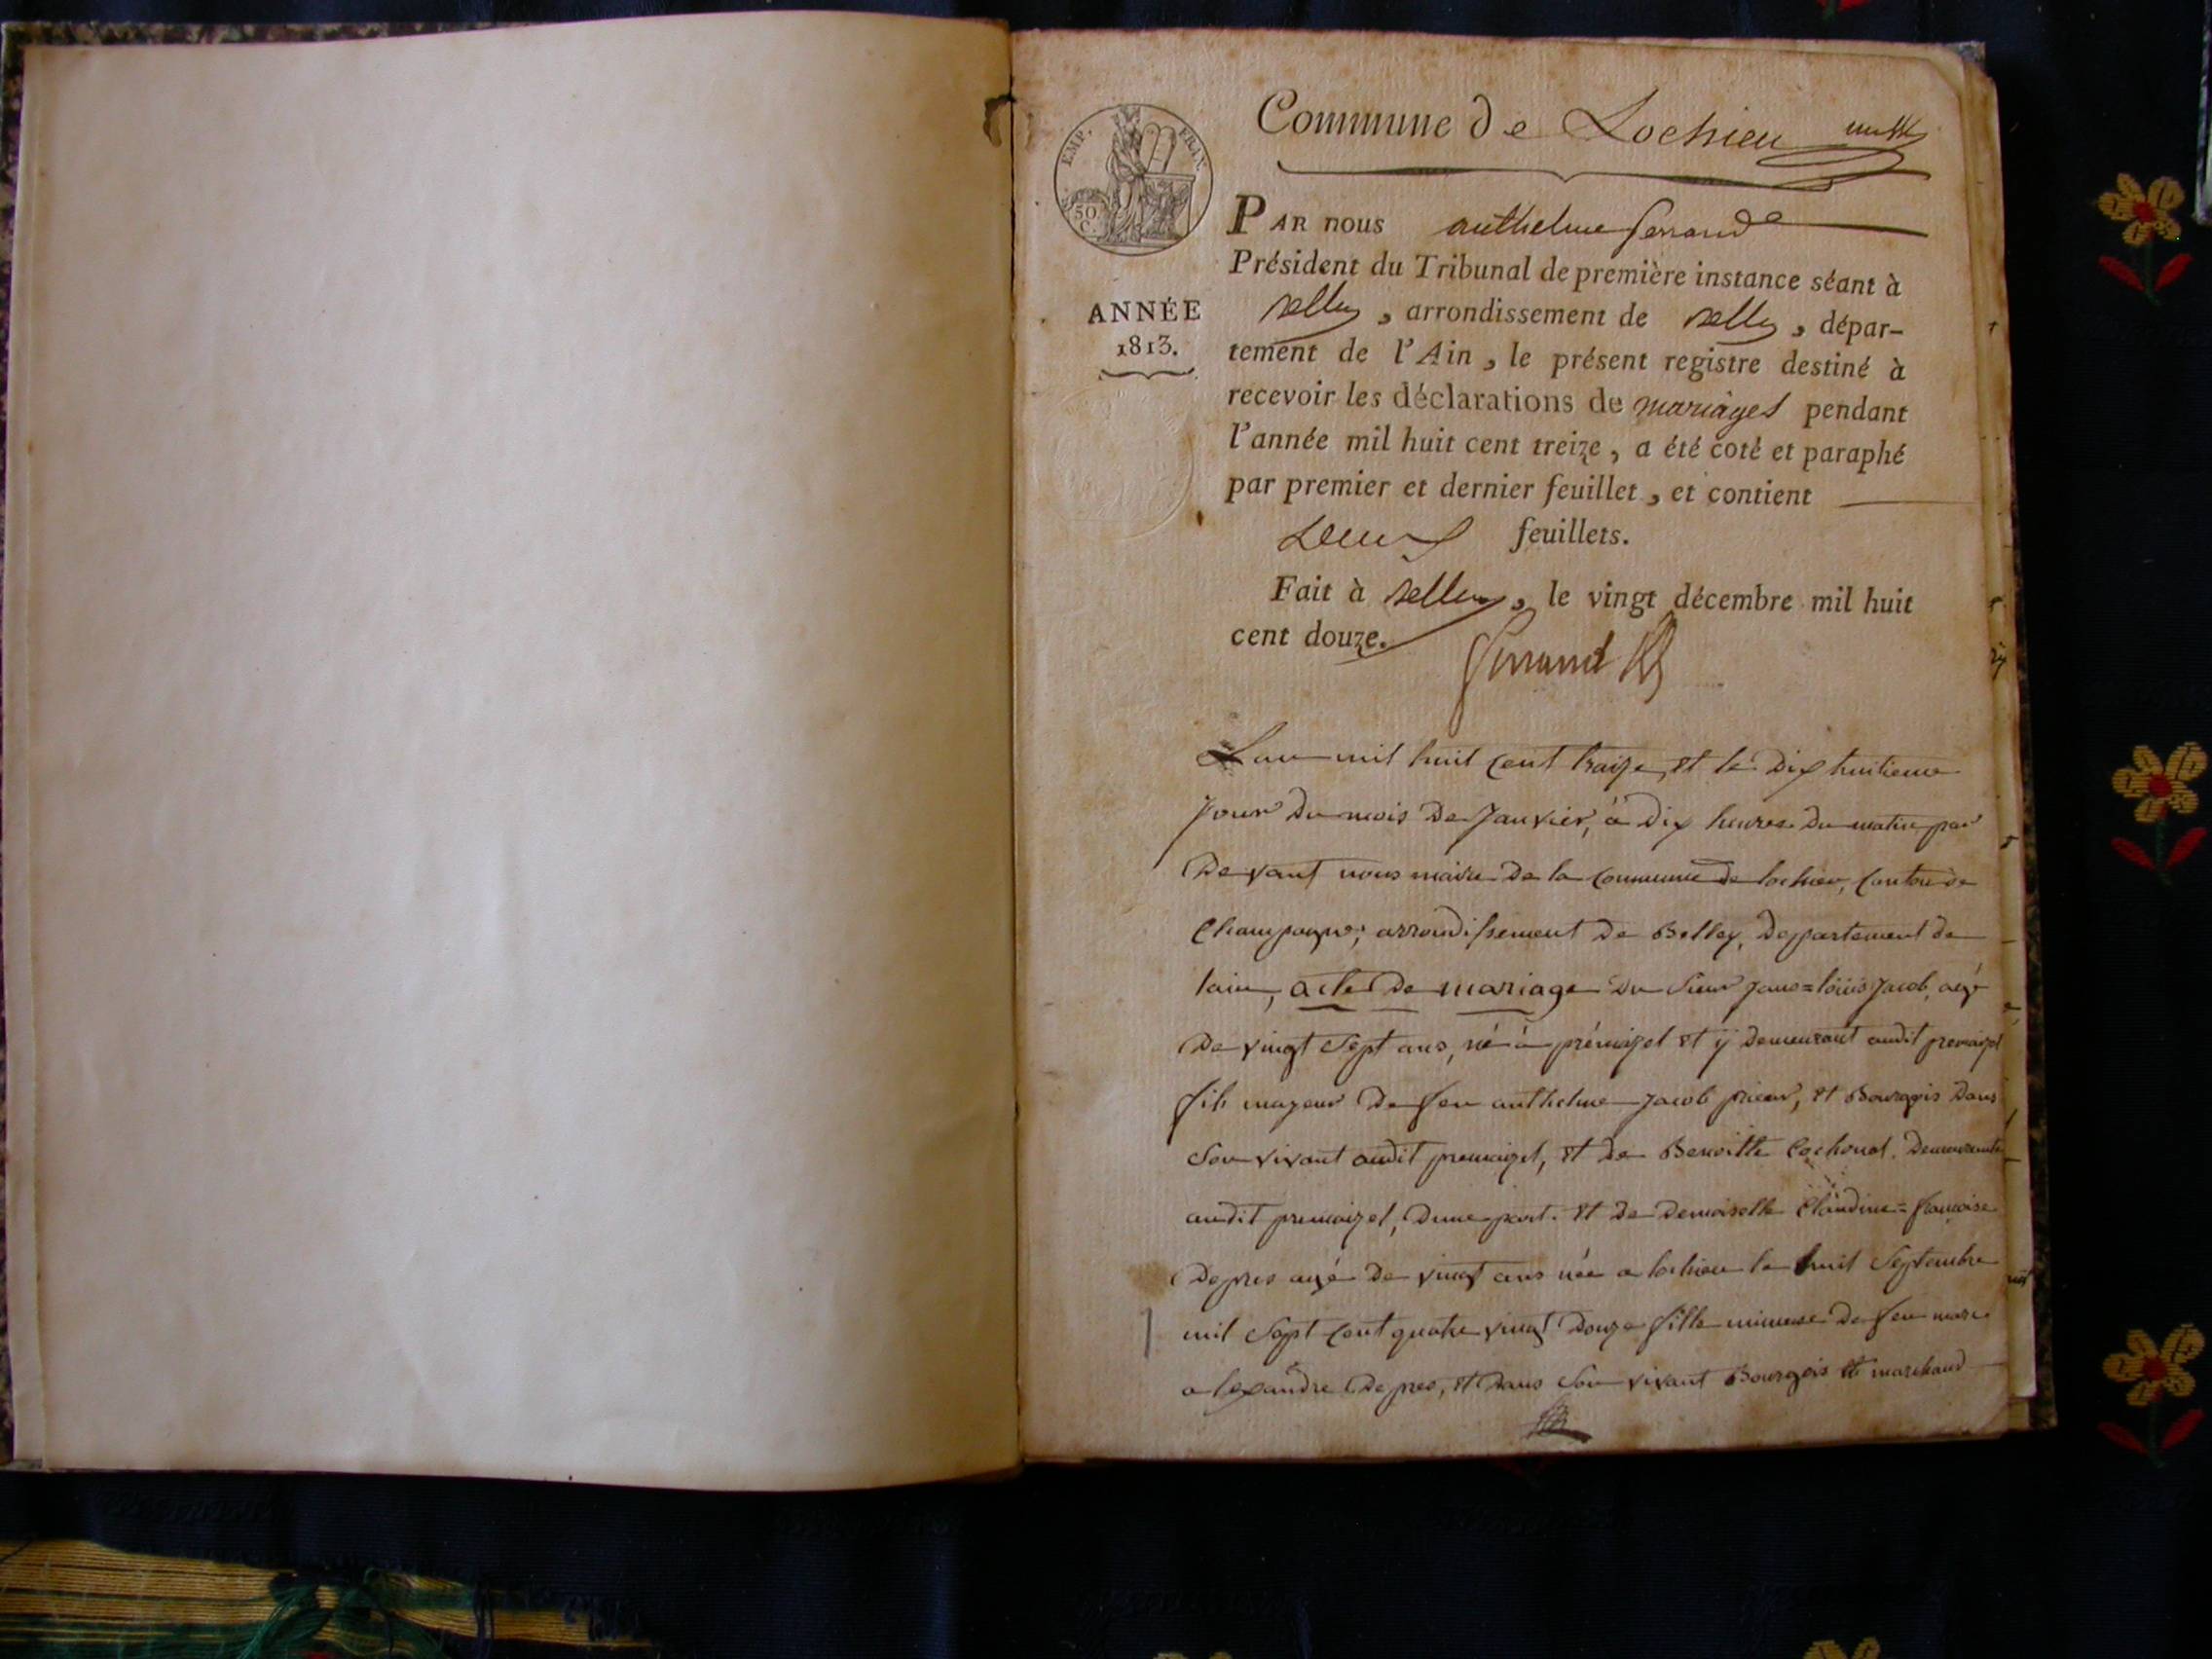 Commune de Lochieu
EMP. FRAN.
50
C.
PAR nous anthelme ferrand
Président du Tribunal de première instance séant à
ANNÉE
1813.
Belley, arrondissement de Belley, dépar-
tement de l'Ain, le présent registre destiné à
recevoir les déclarations de mariages pendant
l'année mil huit cent treize, a été coté et paraphé
par premier et dernier feuillet, et contient
Deux feuillets.
Fait à Belley, le vingt décembre mil huit
cent douze.
ferrand
L'an mil huit cent traize, et le dix huitieme
jour du mois de Janvier, à dix heures du matin par
devant nous maire de la commune de lochieu, canton de
Champagne, arrondissement de Belley, departement de
lain, acte de mariage du sieur Jean=loüis Jacob, agé
de vingt sept ans, né à prémeizel et ÿ demeurant audit premeizel
fils mageur de feu anthelme Jacob prieur, et Bourgois dans
son vivant audit premeizel, et de Benoitte Cochonat demeurante
audit premeizel, dune part. et de demoiselle Claudine=françoise
Depres agé de vingt ans née a lochieu le huit Septembre
mil sept cent quatre vingt douze fille mineuse de feu marc
alexandre Depres, et dans son vivant Bourgois et marchand